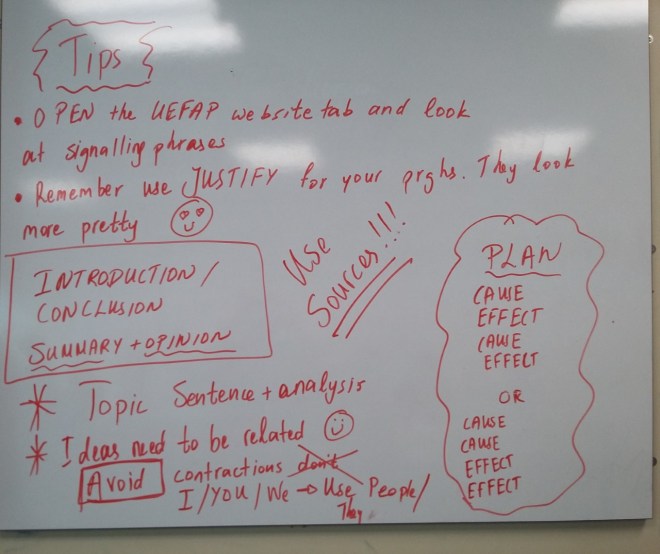 Tips
• OPEN the UEFAP website tab and look
at signalling phrases
• Remember use JUSTIFY for your prghs. They look
more pretty
INTRODUCTION /
CONCLUSION
SUMMARY + OPINION
Use
Sources!!!
PLAN
CAUSE
EFFECT
CAUSE
EFFECT
OR
CAUSE
CAUSE
EFFECT
EFFECT
* Topic Sentence + analysis
* Ideas need to be related
Avoid contractions don't
I / YOU / We → Use People /
They